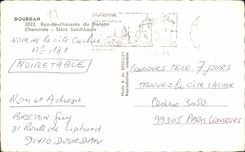 DOURDAN
3022. Rez-de-chaussée du Donjon
Cheminée - Stèle Saint-Louis
DOURDAN
NOM de la cité Cachée
N° 131
NOIRETABLE
Nom et Adresse
BRETON Guy
31 Route de Liphard
91410 DOURDAN
CONCOURS TELE 7 JOURS
TROUVEZ LA CITE CACHEE
Cedex 3050
99305 PARIS CONCOURS